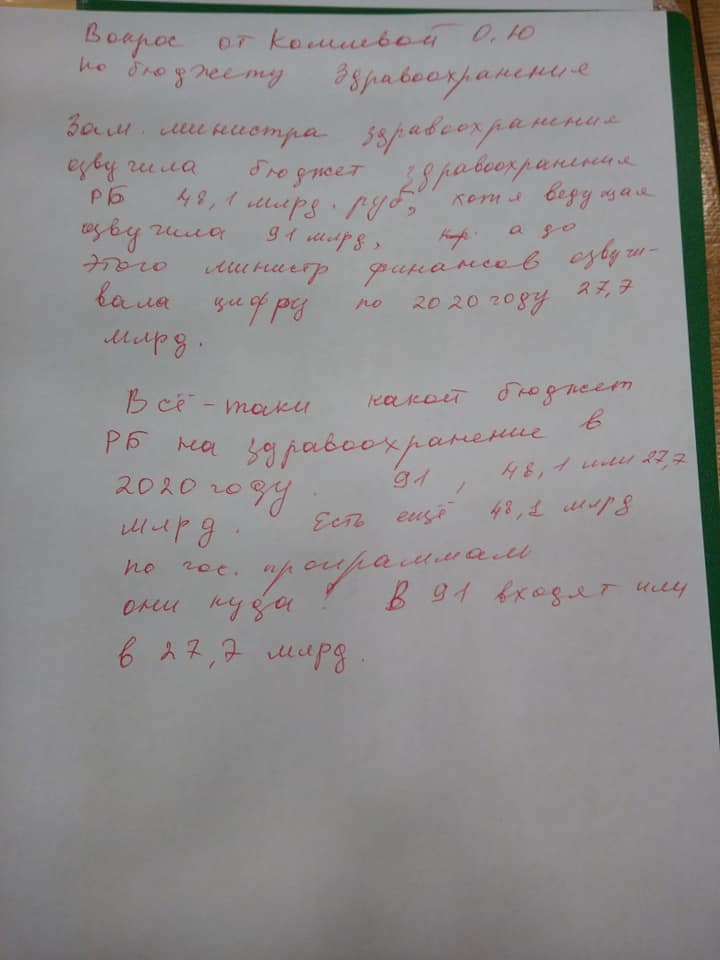 Вопрос от Комлевой О.Ю
по бюджету Здравоохранения
Зам. министра здравоохранения
озвучила бюджет здравоохранения
РБ 48,1 млрд. руб, хотя ведущая
озвучила 91 млрд, а до
этого министр финансов озвучи-
вала цифру по 2020 году 27,7
млрд.
Всё-таки какой бюджет
РБ на здравоохранение в
2020 году. 91, 48,1 или 27,7
млрд. Есть ещё 48,1 млрд
по гос. программам
они куда? В 91 входят или
в 27,7 млрд.